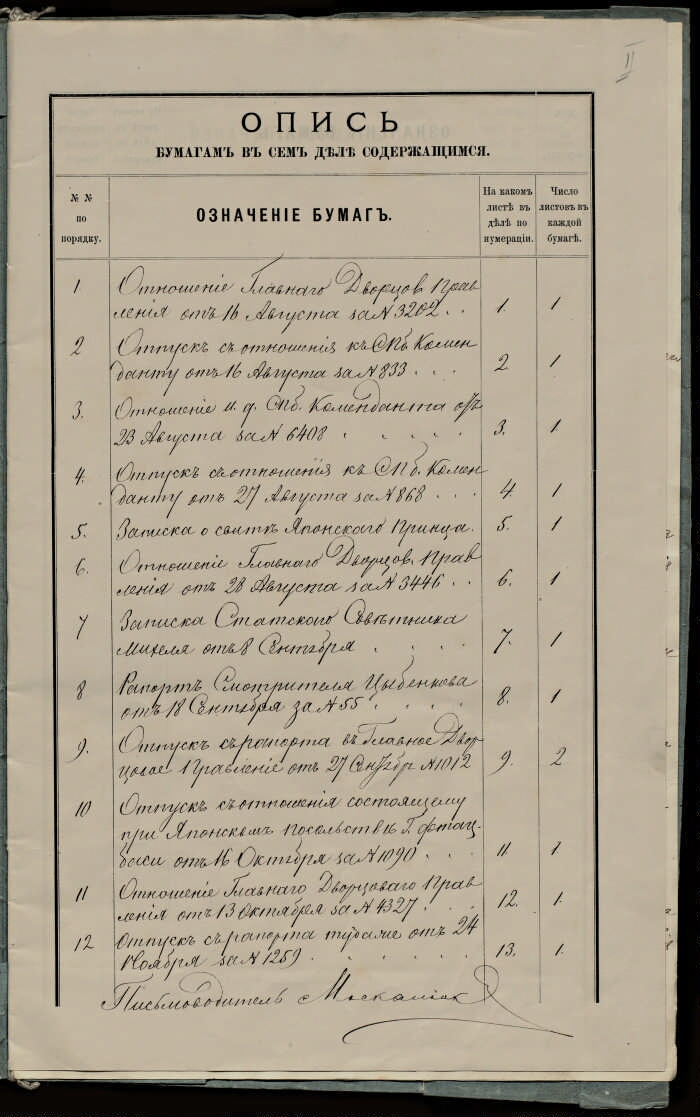 II
ОПИСЬ
БУМАГАМЪ ВЪ СЕМЪ ДѢЛѢ СОДЕРЖАЩИМСЯ.
№ № по порядку.
ОЗНАЧЕНІЕ БУМАГЪ.
На какомъ листѣ въ дѣлѣ по нумераціи.
Число листовъ въ каждой бумагѣ.
1 Отношеніе Главнаго Дворцов. Прав
ленія отъ 16 Августа за N 3202 . . 1. 1
2 Отпускъ съ отношенія къ СПб. Комен
данту отъ 16 Августа за N 833 . . . 2 1
3. Отношеніе и. д. СПб. Коменданта отъ
23 Августа за N 6408 . . . . 3. 1
4. Отпускъ съ отношенія къ СПб. Комен
данту отъ 27 Августа за N 868 . . . 4 1
5. Записка о свитѣ Японскаго Принца. 5. 1
6. Отношеніе Главнаго Дворцов. Прав
ленія отъ 28 Августа за N 3446 . . 6. 1
7 Записка Статского Совѣтника
Михеля отъ 8 Сентября . . . . 7. 1
8 Рапортъ Смотрителя Цыбенкова
отъ 18 Сентября за N 55 . . . . 8. 1
9. Отпускъ съ рапорта въ Главное Двор
цовое Правленіе отъ 27 Сентябр N 1012 9. 2
10 Отпускъ съ отношенія состоящему
при Японскомъ посольствѣ Г.
отъ 16 Октября за N 1090 . . . 11 1.
11 Отношеніе Главнаго Дворцоваго Прав
ленія отъ 13 Октября за N 4327 . . . 12. 1.
12 Отпускъ съ рапорта туда же отъ 24
Ноября за N 1259 . . . . . 13. 1.
Письмоводитель